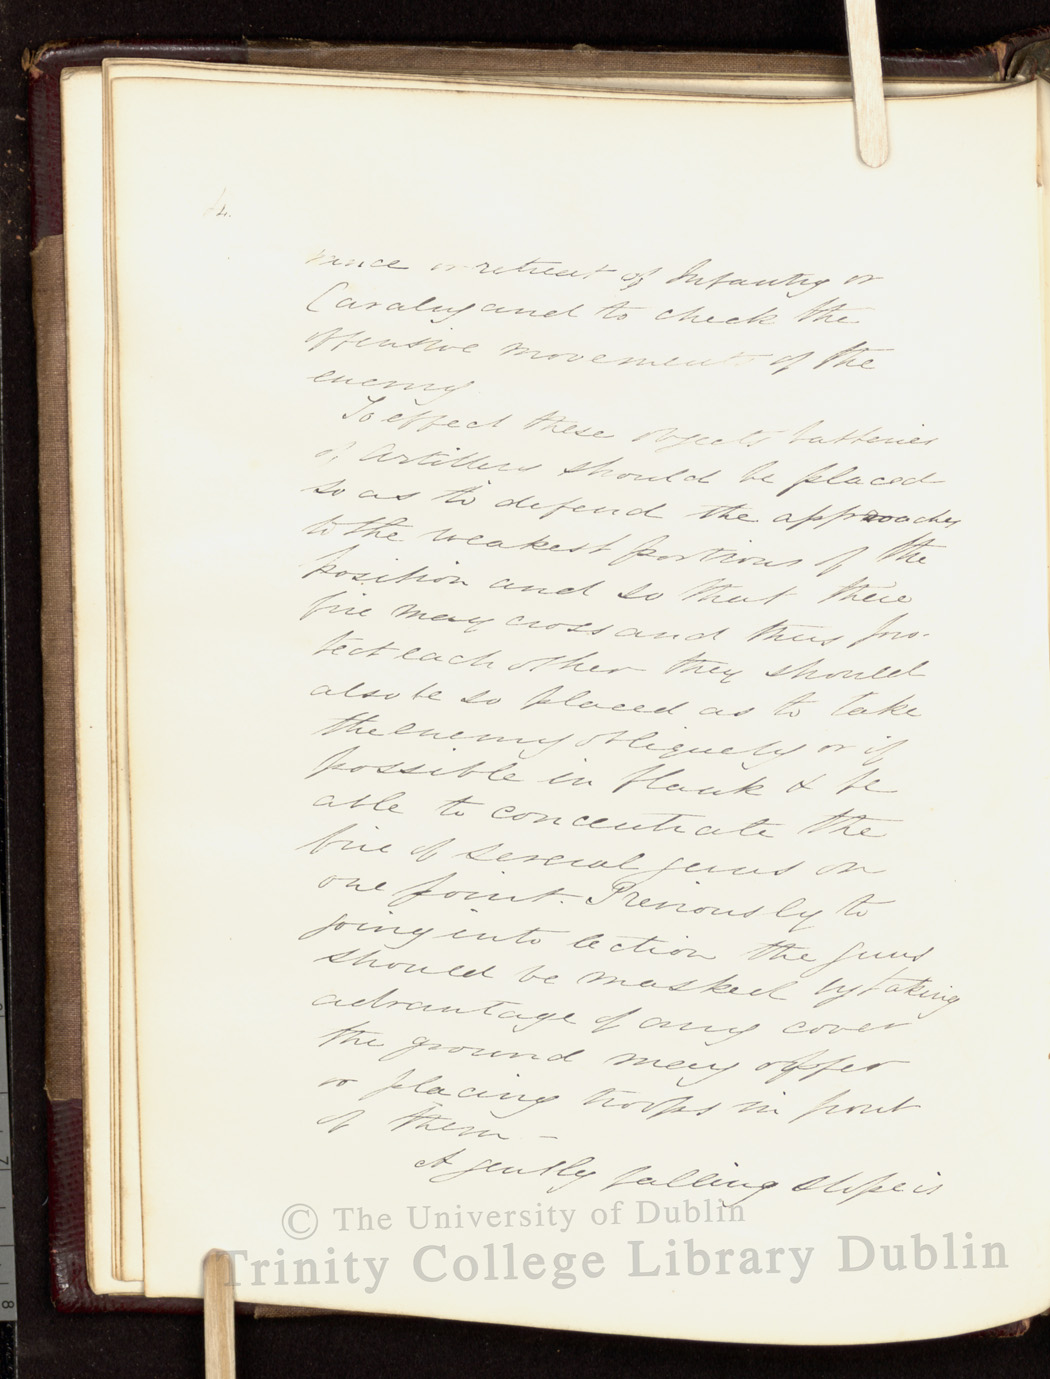 4.
vance or retreat of Infantry or
Cavalry and to check the
offensive movements of the
enemy
To effect these objects batteries
of Artillery should be placed
so as to defend the approaches
to the weakest portions of the
position and so that their
fire may cross and thus pro-
tect each other they should
also be so placed as to take
the enemy obliquely or if
possible in flank & be
able to concentrate the
fire of several guns on
one point. Previously to
going into action the guns
should be masked by taking
advantage of any cover
the ground may offer
or placing troops in front
of them —
A gently falling slope is
© The University of Dublin
Trinity College Library Dublin
8